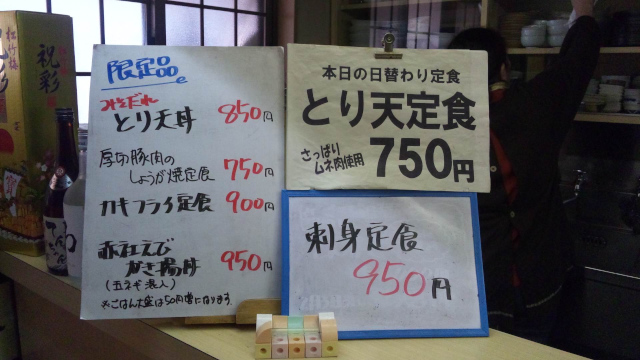 祝彩
限定品
みそだれ
とり天丼 850円
厚切豚肉の
しょうが焼定食 750円
カキフライ定食 900円
赤社えび
かき揚丼 950円
(玉ネギ入)
※ごはん大盛は50円増になります
本日の日替わり定食
とり天定食
さっぱり
ムネ肉使用
750円
刺身定食
950円